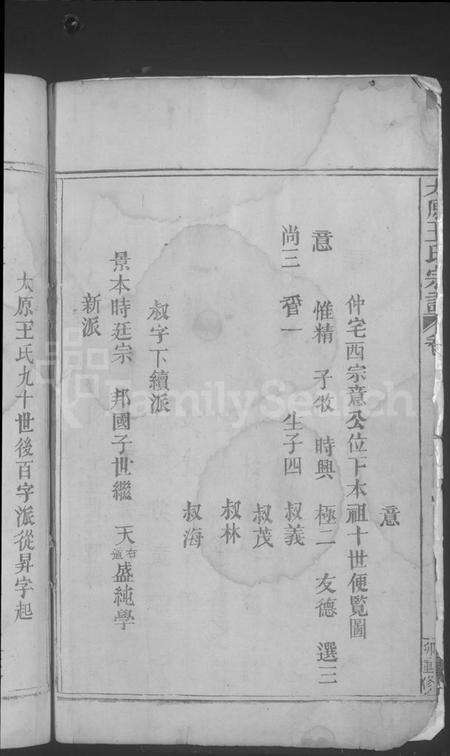 太原王氏宗譜 卷
卯重修
意
仲宅西宗意公位下本祖十世便覽圖
意 惟精 子牧 時興 極二 友德 選三
尚三 晉一 生子四 叔義
叔茂
叔林
叔海
叔字下續派
景本時廷宗 邦國子世繼 天右道盛純學
新派
太原王氏九十世後百字派從昇字起
FamilySearch